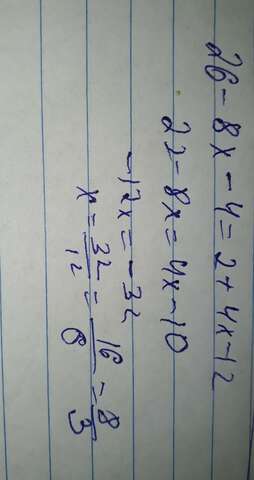 26 - 8x - 4 = 2 + 4x - 12
22 - 8x = 4x - 10
-12x = -32
x = 32/12 = 16/6 = 8/3